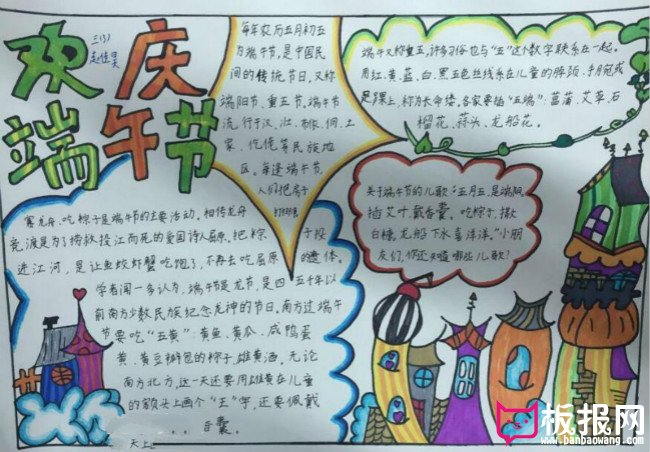 欢庆
端午节
三(3)
每年农历五月初五
为端午节,是中国民
间的传统节日,又称
端阳节、重五节。端午节
流行于汉、壮、布依、侗、土
家、仡佬等民族地
区。每逢端午节,
人们把房子
打扫
端午又称重五,许多习俗也与“五”这个数字联系在一起。
用红、黄、蓝、白、黑五色丝线系在儿童的脖颈、手腕或
是踝上,称为长命缕。各家要插“五端”:菖蒲、艾草、石
榴花、蒜头、龙船花。
赛龙舟、吃粽子是端午节的主要活动。相传龙舟
竞渡是为了捞救投江而死的爱国诗人屈原。把粽子投
进江河,是让鱼蛟虾蟹吃饱了,不再去吃屈原的遗体。
学者闻一多认为,端午节是龙节,是四五千年以
前南方少数民族纪念龙神的节日。南方过端午
节要吃“五黄”:黄鱼、黄瓜、咸鸭蛋
黄、黄豆瓣包的粽子、雄黄酒。无论
南方北方,这一天还要用雄黄在儿童
的额头上画个“王”字,还要佩戴
香囊。
天上
关于端午节的儿歌:“五月五,是端阳。
插艾叶,戴香囊。吃粽子,撒
白糖。龙船下水喜洋洋。”小朋
友们,你还知道哪些儿歌?
板报网
www.banbaowang.com